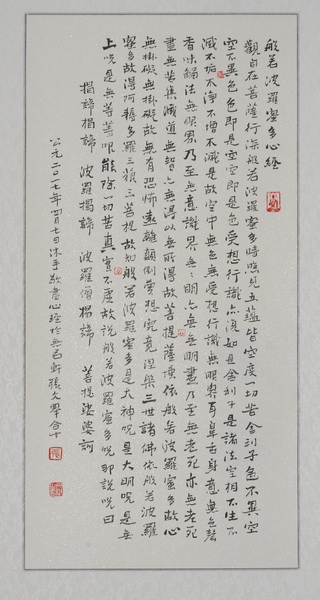 般若波羅蜜多心經
觀自在菩薩行深般若波羅蜜多時照見五蘊皆空度一切苦厄舍利子色不異空
空不異色色即是空空即是色受想行識亦復如是舍利子是諸法空相不生不
滅不垢不淨不增不減是故空中無色無受想行識無眼耳鼻舌身意無色聲
香味觸法無眼界乃至無意識界無無明亦無無明盡乃至無老死亦無老死
盡無苦集滅道無智亦無得以無所得故菩提薩埵依般若波羅蜜多故心
無掛礙無掛礙故無有恐怖遠離顛倒夢想究竟涅槃三世諸佛依般若波羅
蜜多故得阿耨多羅三藐三菩提故知般若波羅蜜多是大神咒是大明咒是無
上咒是無等等咒能除一切苦真實不虛故說般若波羅蜜多咒即說咒曰
揭諦揭諦 波羅揭諦 波羅僧揭諦 菩提薩婆訶
公元二〇一七年四月七日沐手敬書心經於軒張文合十